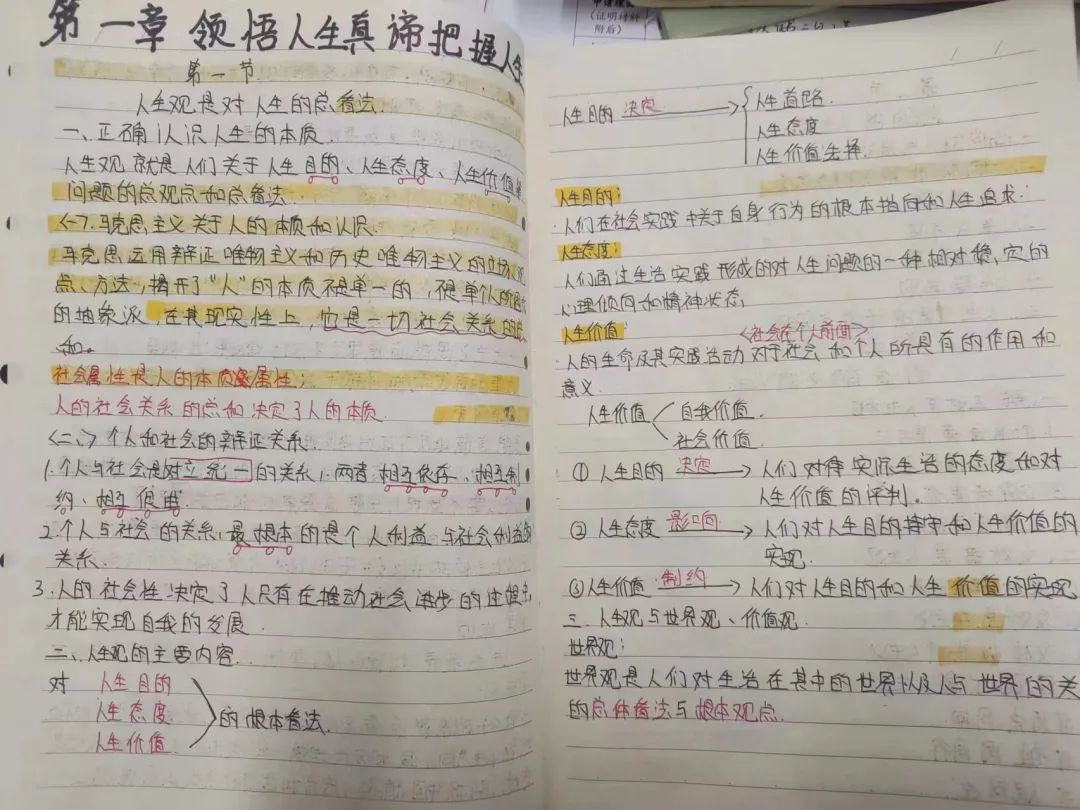 申请理
(证明材料
附后)
第一章 领悟人生真谛把握人生
第一节
人生观是对人生的总看法
一、正确认识人生的本质.
人生观就是人们关于人生目的、人生态度、人生价值等
问题的总观点和总看法.
<一>.马克思主义关于人的本质和认识
马克思运用辩证唯物主义和历史唯物主义的立场、观
点、方法,揭开了“人”的本质不是单一的,不是单个人所固有
的抽象派,在其现实性上,它是一切社会关系的总
和。
社会属性是人的本质属性;
人的社会关系的总和决定了人的本质.
<二、>个人和社会的辩证关系.
1.个人与社会是对立统一的关系,两者相互依存、相互制
约、相互促进
2.个人与社会的关系,最根本的是个人利益与社会利益的
关系.
3.人的社会性决定了人只有在推动社会进步的过程中,
才能实现自我的发展.
二、人生观的主要内容.
对 人生目的
人生态度 的根本看法.
人生价值
人生目的 决定 人生道路.
人生态度
人生价值选择.
人生目的:
人们在社会实践中关于自身行为的根本指向和人生追求.
人生态度:
人们通过生活实践形成的对人生问题的一种相对稳定的
心理倾向和精神状态,
人生价值: <社会在个人前面>
人的生命及其实践活动对于社会和个人所具有的作用和
意义.
人生价值 自我价值.
社会价值.
① 人生目的 决定 人们对待实际生活的态度和对
人生价值的评判.
② 人生态度 影响 人们对人生目的持守和人生价值的
实现.
③ 人生价值 制约 人们对人生目的和人生价值的实现
三、人生观与世界观、价值观.
世界观:
世界观是人们对生活在其中的世界以及人与世界的关
的总体看法与根本观点.